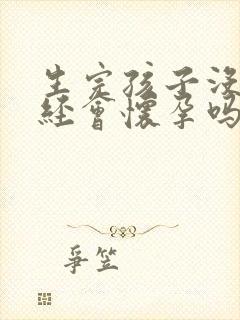 生完孩子没
经会怀孕吗
争笠